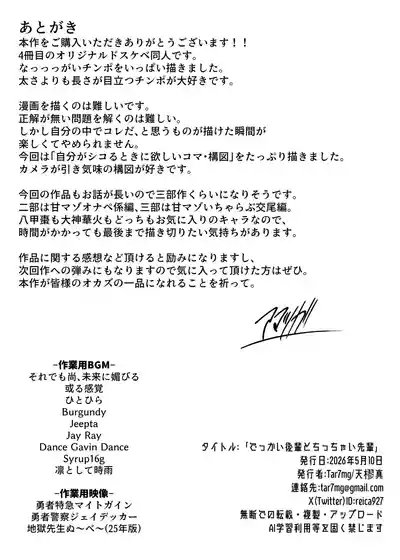 あとがき
本作をご購入いただきありがとうございます！！
4冊目のオリジナルドスケベ同人です。
なっっっがいチンポをいっぱい描きました。
太さよりも長さが目立つチンポが大好きです。
漫画を描くのは難しいです。
正解が無い問題を解くのは難しい。
しかし自分の中でコレだ、と思うものが描けた瞬間が
楽しくてやめられません。
今回は「自分がシコるときに欲しいコマ・構図」をたっぷり描きました。
カメラが引き気味の構図が好きです。
今回の作品もお話が長いので三部作くらいになりそうです。
二部は甘マゾオナペ係編、三部は甘マゾいちゃらぶ交尾編。
八甲棗も大神華火もどっちもお気に入りのキャラなので、
時間がかかっても最後まで描き切りたい気持ちがあります。
作品に関する感想など頂けると励みになりますし、
次回作への弾みにもなりますので気に入って頂けた方はぜひ。
本作が皆様のオカズの一品になれることを祈って。
–作業用BGM–
それでも尚、未来に媚びる
或る感覚
ひとひら
Burgundy
Jeepta
Jay Ray
Dance Gavin Dance
Syrup16g
凛として時雨
–作業用映像–
勇者特急マイトガイン
勇者警察ジェイデッカー
地獄先生ぬ～べ～(25年版)
タイトル:「でっかい後輩とちっちゃい先輩」
発行日:2026年5月10日
発行者:Tar7mg/天樛真
連絡先:tar7mg@gmail.com
X(Twitter)ID:reica927
無断での転載・複製・アップロード
AI学習利用等を固く禁じます